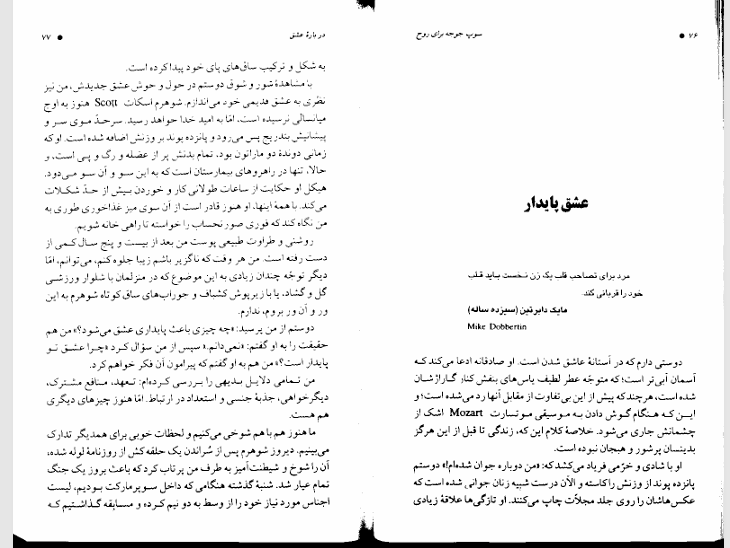 ۷۶ ● سوپ جوجه برای روح
عشق پایدار
مرد برای تصاحب قلب یک زن نخست باید قلب
خود را قربانی کند.
مایک دابرتین (سیزده ساله)
Mike Dobbertin
دوستی دارم که در آستانهٔ عاشق شدن است. او صادقانه ادعا می‌کند که
آسمان آبی‌تر است؛ که متوجّه عطر لطیف یاس‌های بنفش کنار گاراژشان
شده است، هرچند که پیش از این بی‌تفاوت از مقابل آنها رد می‌شده است؛ و
این‌که هنگام گوش دادن به موسیقی موتسارت Mozart اشک از
چشمانش جاری می‌شود. خلاصهٔ کلام این که، زندگی تا قبل از این هرگز
بدینسان پرشور و هیجان نبوده است.
او با شادی و خرّمی فریاد می‌کشد که: «من دوباره جوان شده‌ام!» دوستم
پانزده پوند از وزنش را کاسته و الآن درست شبیه زنان جوانی شده است که
عکس‌هاشان را روی جلد مجلاّت چاپ می‌کنند. او تازگی‌ها علاقهٔ زیادی
دربارهٔ عشق ● ۷۷
به شکل و ترکیب ساق‌های پای خود پیدا کرده است.
با مشاهدهٔ شور و شوق دوستم در حول و حوش عشق جدیدش، من نیز
نظری به عشق قدیمی خود می‌اندازم. شوهرم اسکات Scott هنوز به اوج
میانسالی نرسیده است، امّا به امید خدا خواهد رسید. سرحدّ موی سر و
پیشانیش بتدریج پس می‌رود و پانزده پوند بر وزنش اضافه شده است. او که
زمانی دوندهٔ دو ماراتون بود، تمام بدنش پر از عضله و رگ و پی است، و
حالا، تنها در راهروهای بیمارستان است که به این سو و آن سو می‌دود.
هیکل او حکایت از ساعات طولانی کار و خوردن بیش از حدّ شکلات
می‌کند. با همهٔ اینها، او هنوز قادر است از آن سوی میز غذاخوری طوری به
من نگاه کند که فوری صورتحساب را خواسته تا راهی خانه شویم.
روشنی و طراوت طبیعی پوست من بعد از بیست و پنج سال کمی از
دست رفته است. من هر وقت که ناگزیر باشم زیبا جلوه کنم، می‌توانم، امّا
دیگر توجّه چندان زیادی به این موضوع که در منزلمان با شلوار ورزشی
گل و گشاد، یا با زیرپوش کشباف و جوراب‌های ساق کوتاه شوهرم به این
ور و آن ور بروم، ندارم.
دوستم از من پرسید: «چه چیزی باعث پایداری عشق می‌شود؟» من هم
حقیقت را به او گفتم: «نمی‌دانم.» سپس از من سؤال کرد «چرا عشق تو
پایدار است؟» من هم به او گفتم که پیرامون آن فکر خواهم کرد.
من تمامی دلایل بدیهی را بررسی کرده‌ام: تعهد، منافع مشترک،
دیگرخواهی، جذبهٔ جنسی و استعداد در ارتباط. امّا هنوز چیزهای دیگری
هم هست.
ما هنوز هم با هم شوخی می‌کنیم و لحظات خوبی برای همدیگر تدارک
می‌بینیم. دیروز شوهرم پس از سُراندن یک حلقه کش از روزنامهٔ لوله شده،
آن را شوخ و شیطنت‌آمیز به طرف من پرتاب کرد که باعث بروز یک جنگ
تمام عیار شد. شنبهٔ گذشته هنگامی که داخل سوپرمارکت بودیم، لیست
اجناس مورد نیاز خود را از وسط به دو نیم کرده و مسابقه گذاشتیم که